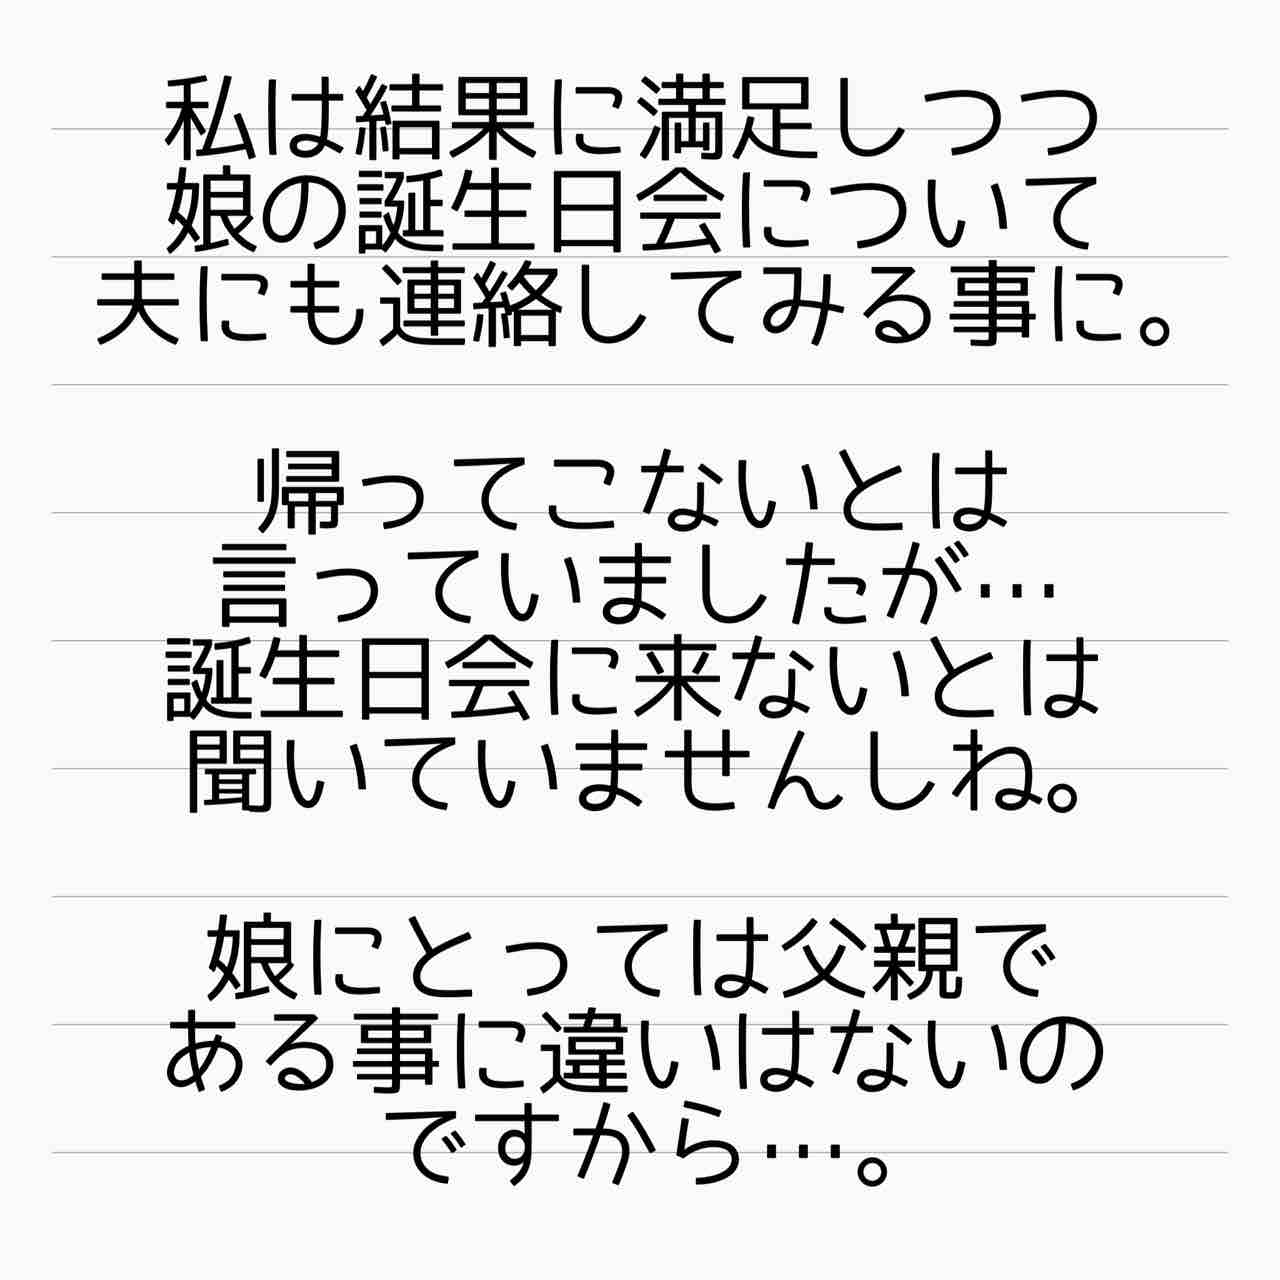 私は結果に満足しつつ
娘の誕生日会について
夫にも連絡してみる事に。
帰ってこないとは
言っていましたが…
誕生日会に来ないとは
聞いていませんしね。
娘にとっては父親で
ある事に違いはないの
ですから…。